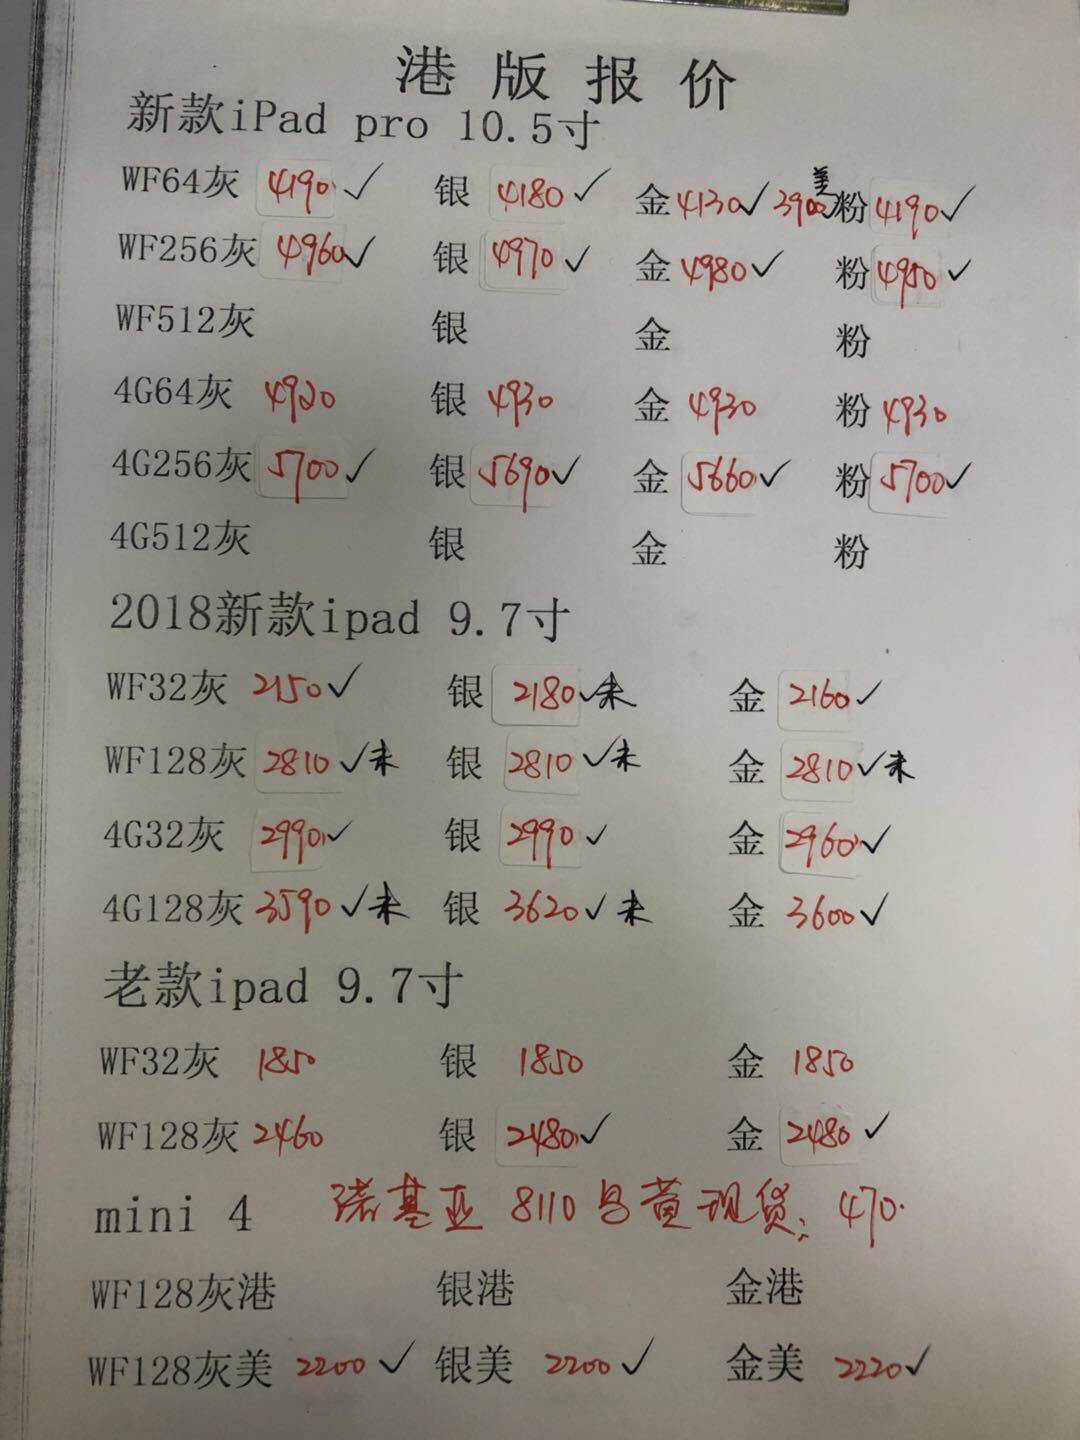 港版报价
新款iPad pro 10.5寸
WF64灰 4190✓ 银 4180✓ 金 4130✓ 3900✓美 粉 4190✓
WF256灰 4960✓ 银 4970✓ 金 4980✓ 粉 4950✓
WF512灰 银 金 粉
4G64灰 4920 银 4930 金 4930 粉 4930
4G256灰 5700✓ 银 5690✓ 金 5660✓ 粉 5700✓
4G512灰 银 金 粉
2018新款ipad 9.7寸
WF32灰 2150✓ 银 2180✓未 金 2160✓
WF128灰 2810✓未 银 2810✓未 金 2810✓未
4G32灰 2990✓ 银 2990✓ 金 2960✓
4G128灰 3590✓未 银 3620✓未 金 3600✓
老款ipad 9.7寸
WF32灰 1850 银 1850 金 1850
WF128灰 2460 银 2480✓ 金 2480✓
mini 4 诺基亚 8110 黄现货: 470.
WF128灰港 银港 金港
WF128灰美 2200✓ 银美 2200✓ 金美 2220✓